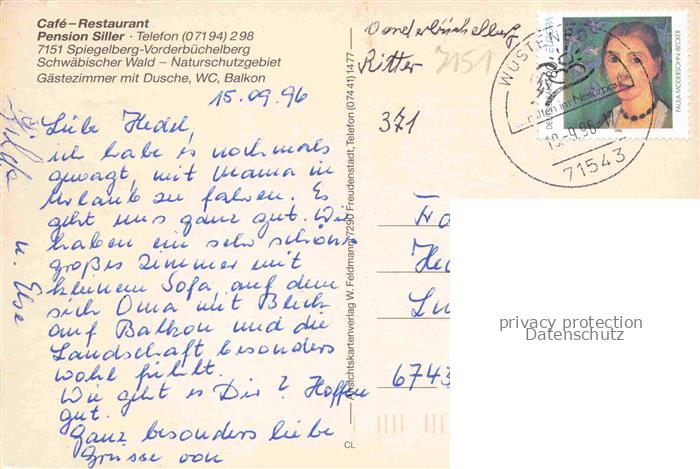 Café – Restaurant
Pension Siller · Telefon (07194) 298
7151 Spiegelberg-Vorderbüchelberg
Schwäbischer Wald – Naturschutzgebiet
Gästezimmer mit Dusche, WC, Balkon
15.09.96
Liebe Hedel,
ich habe es nochmals
gewagt, mit Mama in
Urlaub zu fahren. Es
geht uns ganz gut. Wir
haben ein sehr schönes
großes Zimmer mit
kleinem Sofa auf dem
sich Oma mit Blick
auf Balkon und die
Landschaft besonders
wohl fühlt.
Wie geht es Dir? Hoffen
gut.
Ganz besonders liebe
Grüsse von
u. Else
Ansichtskartenverlag W. Feldmann, 7290 Freudenstadt, Telefon (07441) 1477
CL
Ritter
7151
371
PAULA MODERSOHN-BECKER
WÜSTENROT
71543
Fa
Hed
Lu
6743
privacy protection
Datenschutz